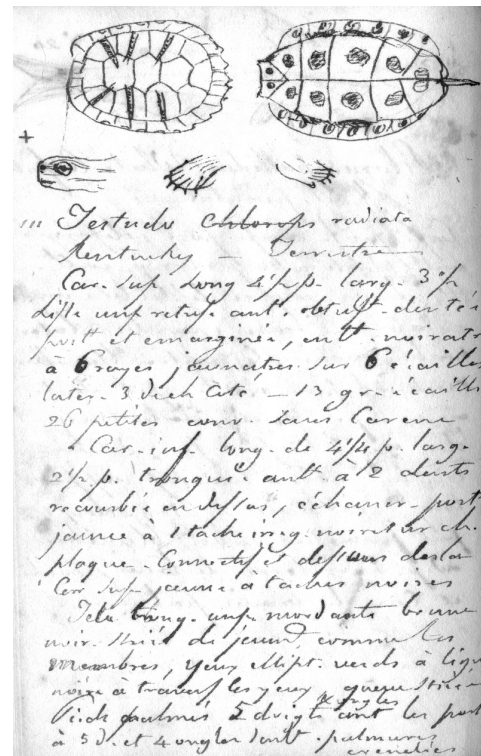 Testudo chlorops radiata
Kentuky — Terrestre
Car. sup. long 4 p.p. larg. 3
unif retuse ant. obtus. dentée
postt et emarginée, noiratre
à 6 rayes jaunatres sur 6 écailles
lates. 3 de ch. coté — 13 gr. écailles
26 petites conv. sans carene
Car. inf. long. de 4 1/4 p. larg.
2 1/2 p. tronquée antt à 2 dents
recourbée en dessus, échancr. post
jaune à 1 tache irreg. noire sur ch.
plaque. Connectif et dessous de la
Car sup jaune à taches noires
Tete brune
noir. striée de jaune comme les
membres, yeux ellipt. verds à ligne
noire à travers les yeux queue striée
Pieds palmés 5 doigts ongles ant les post
à 5 d. et 4 ongles palmures
crenelées